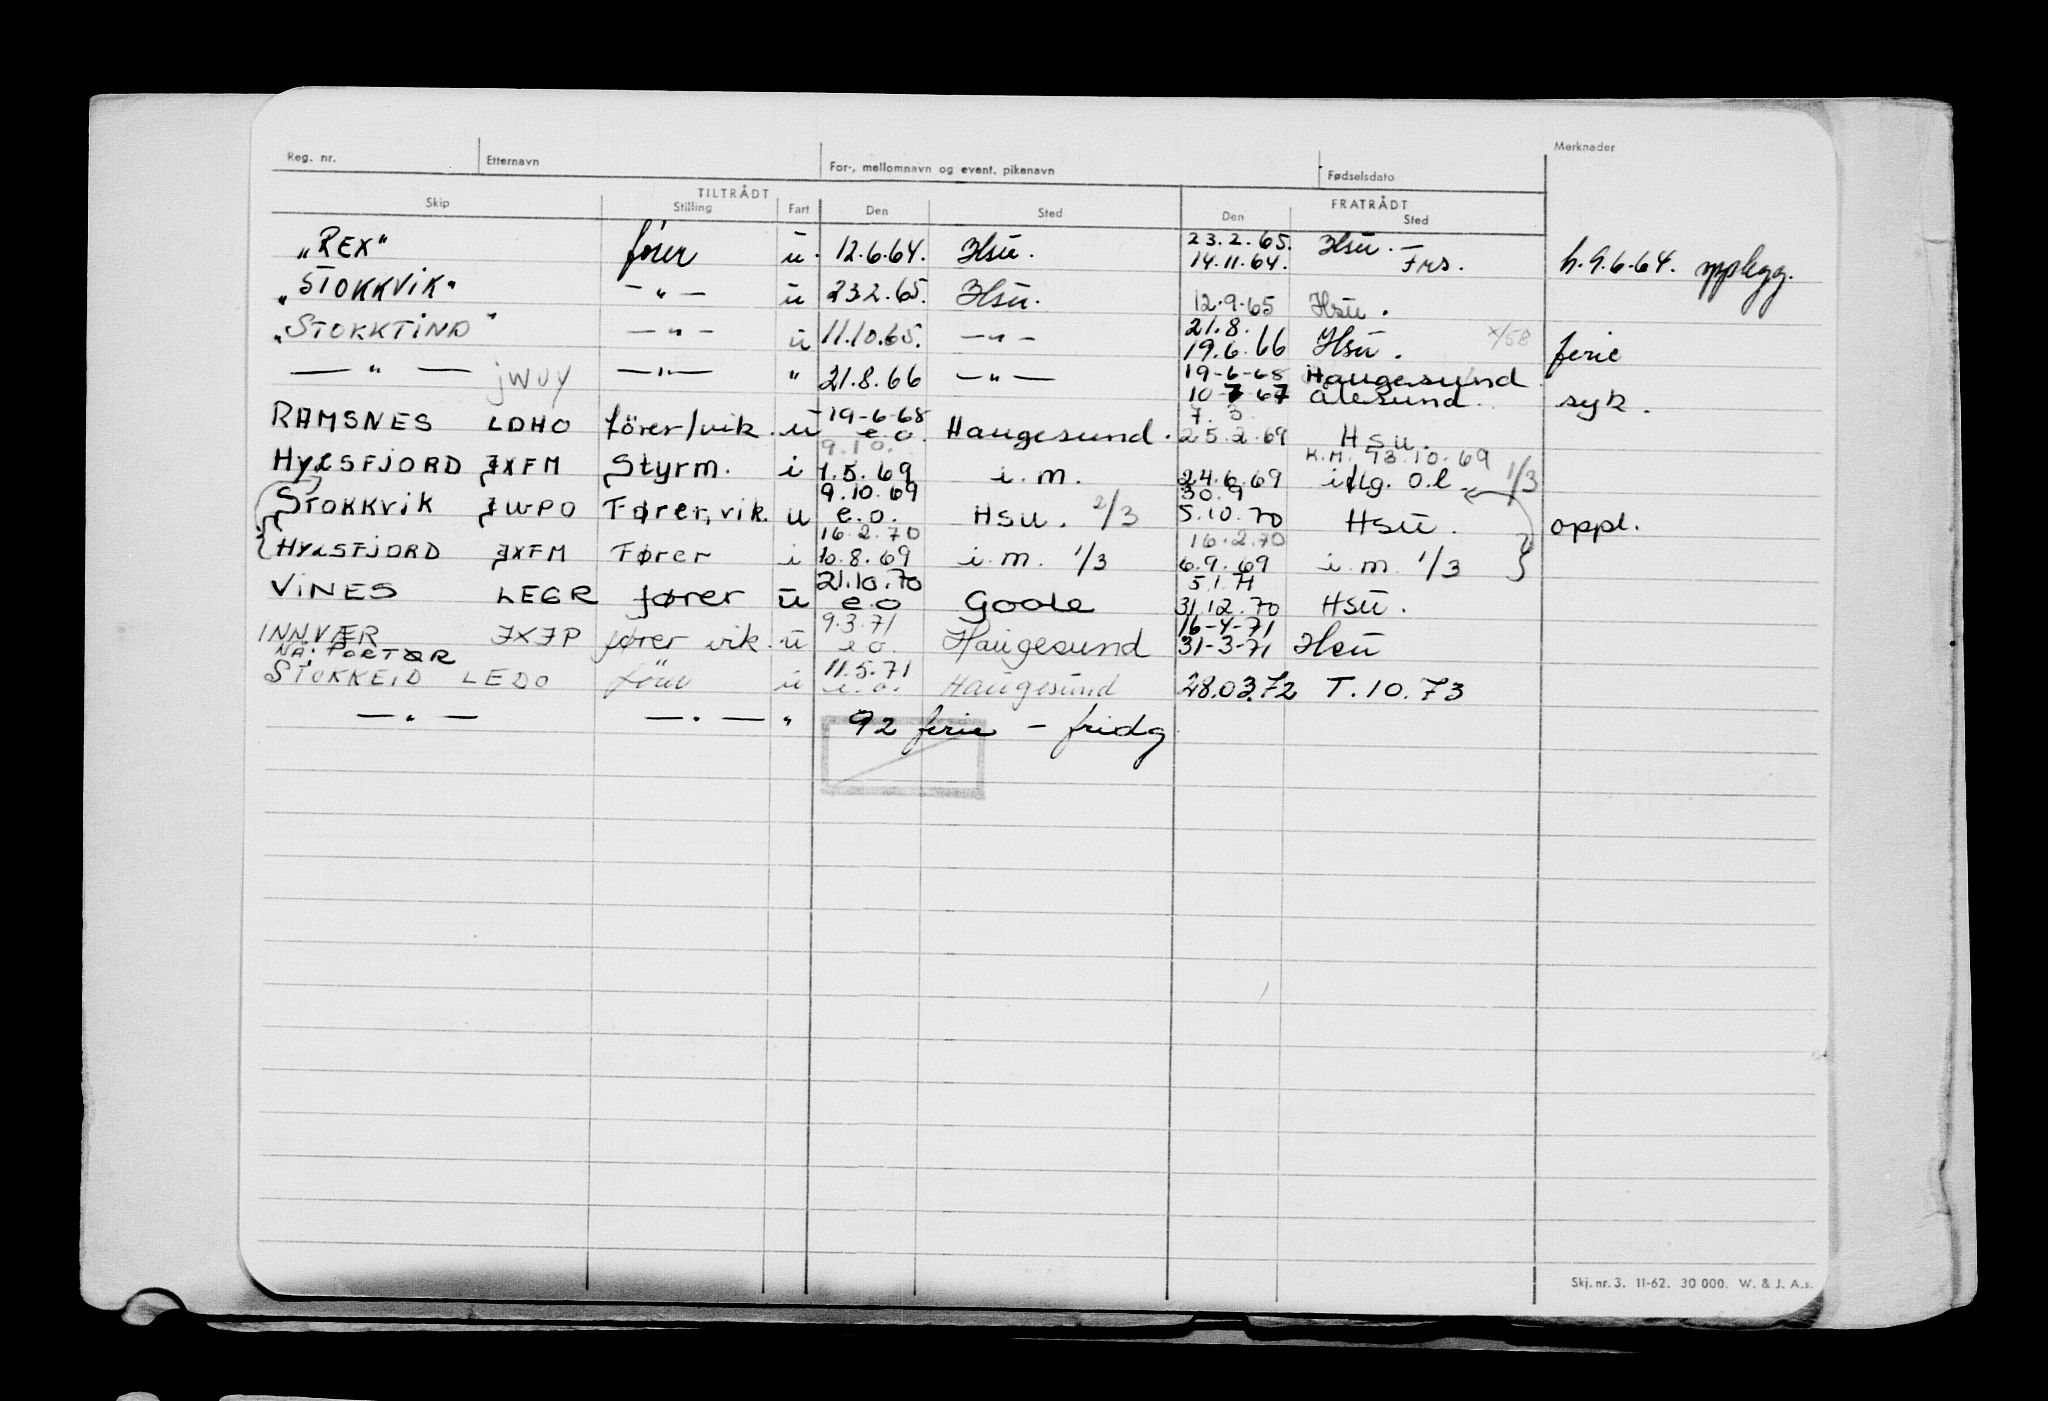 Reg. nr. Etternavn For-, mellomnavn og event. pikenavn Fødselsdato Merknader
TILTRÅDT FRATRÅDT
Skip Stilling Fart Den Sted Den Sted
„REX“ fører ū. 12.6.64. Hsū. 23.2.65. Hsū. —
14.11.64. Frs. h. 9.6.64. opplegg.
„STOKKVIK“ — „ — ū 23.2.65. Hsū. 12.9.65 Hsū.
„STOKKTIND“ — „ — ū 11.10.65. — „ — 21.8.
19.6.66 Hsū. x/58 ferie
— „ — JWUY — „ — „ 21.8.66 — „ — 19-6-68 Haugesund
10-7-67 Ålesund. syk.
RAMSNES LDHO fører/vik. ū 19-6-68 e.o. Haugesund. 7.3
25.2.69 Hsu.
HYLSFJORD JXFM Styrm. i 9.10.
1.5.69 i.m. 24.6.69 K.M. 13.10.69
iflg. o.l. 1/3
STOKKVIK JWPO Fører, vik. u 9.10.69
e.o. Hsu. 2/3 30.9
5.10.70 Hsū. oppl.
HYLSFJORD JXFM Fører i 16.2.70
10.8.69 i.m. 1/3 16.2.70
6.9.69 i.m. 1/3
VINES LEGR fører ū 21.10.70
e.o Goole 5.1.71
31.12.70 Hsū.
INNVÆR JXJP fører vik. ū 9.3.71
e.o. Haugesund 16-4-71
31-3-71 Hsū
NÅ: PORTØR
STOKKEID LEDO fører ū 11.5.71
e.o. Haugesund 28.03.72 T.10.73
— „ — — „ — „ 92 ferie — fridg
Skj. nr. 3. 11-62. 30 000. W. & J. A.s.